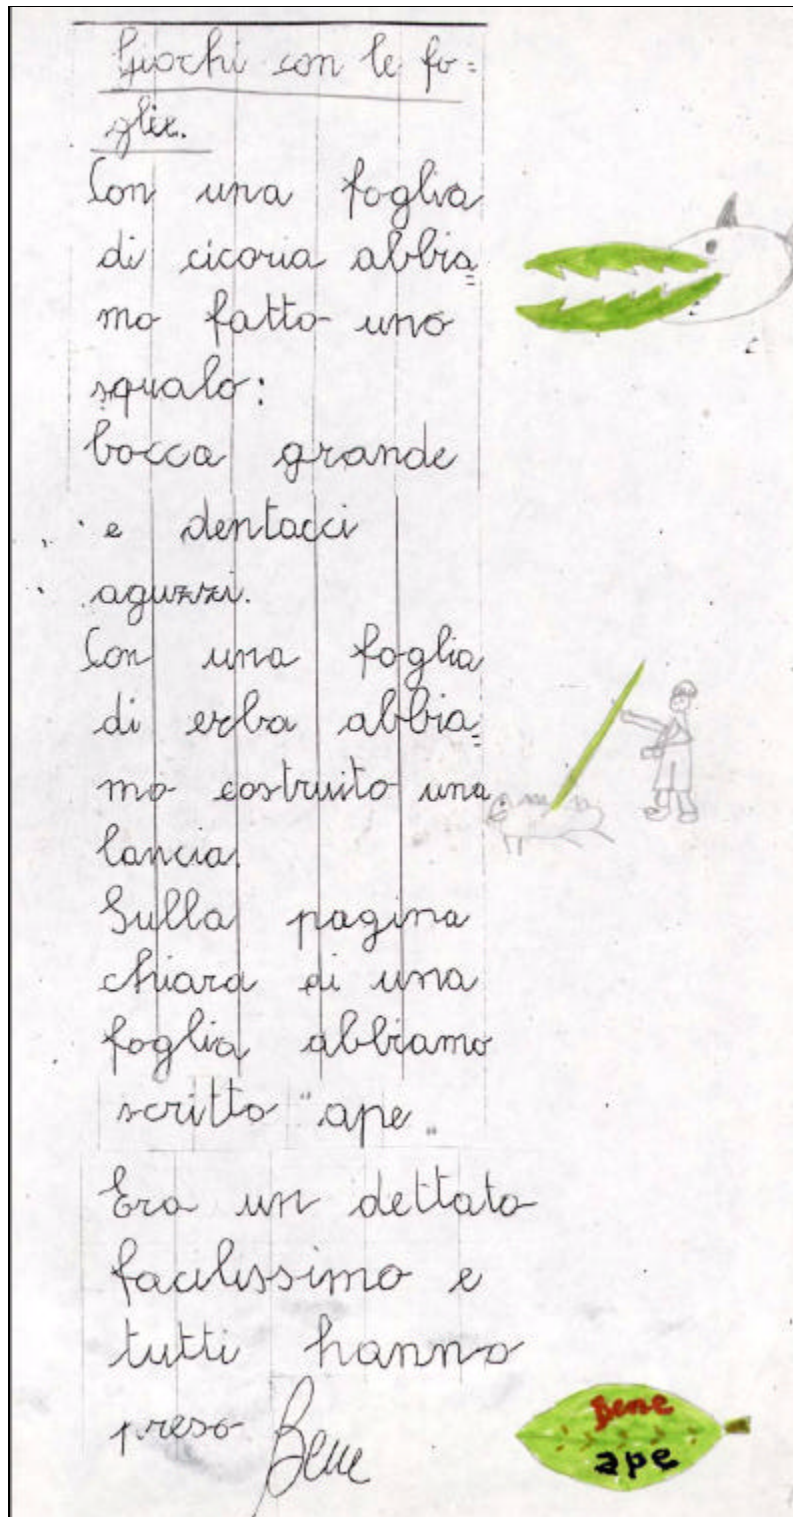 Giochi con le fo=
glie.
Con una foglia
di cicoria abbia=
mo fatto uno
squalo:
bocca grande
e dentacci
aguzzi.
Con una foglia
di erba abbia=
mo costruito una
lancia.
Sulla pagina
chiara di una
foglia abbiamo
scritto "ape„
Era un dettato
facilissimo e
tutti hanno
preso Bene
Bene
ape